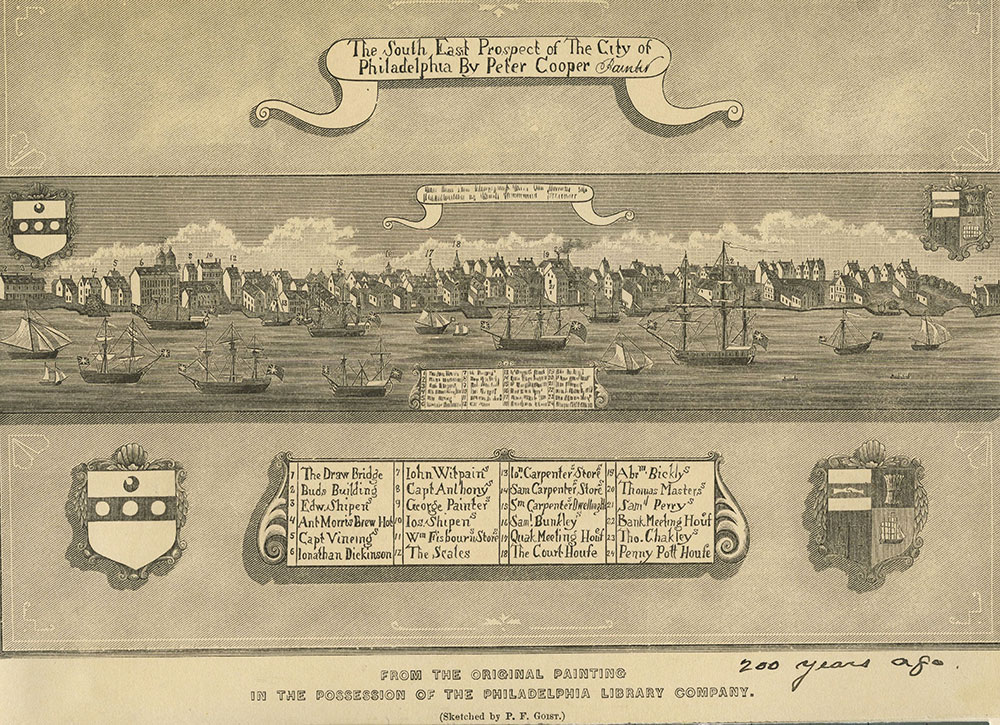 The South East Prospect of The City of
Philadelphia By Peter Cooper Painter
1 The Draw Bridge
2 Buds Building
3 Edw. Shipen
4 Ant Morris Brew Hoſ
5 Capt Vineingˢ
6 Ionathan Dickinson
7 Iohn Witpainˢ
8 Capt Anthonyˢ
9 George Painterˢ
10 Ios. Shipenˢ
11 Wᵐ Fisbournˢ Store
12 The Scales
13 Iaⁿ Carpenterˢ Store
14 Sam Carpenterˢ Store
15 Sᵐ Carpenterˢ Dwelling
16 Samˡ Bunkleyˢ
17 Quak Meeting Houſ
18 The Court Houſe
19 Abrᵐ Bicklyˢ
20 Thomas Mastersˢ
21 Samˡ Perryˢ
22 Bank Meeting Houſ
23 Tho. Chakleyˢ
24 Penny Pott Houſe
FROM THE ORIGINAL PAINTING
IN THE POSSESSION OF THE PHILADELPHIA LIBRARY COMPANY.
(Sketched by P. F. Goist.)
200 years ago.